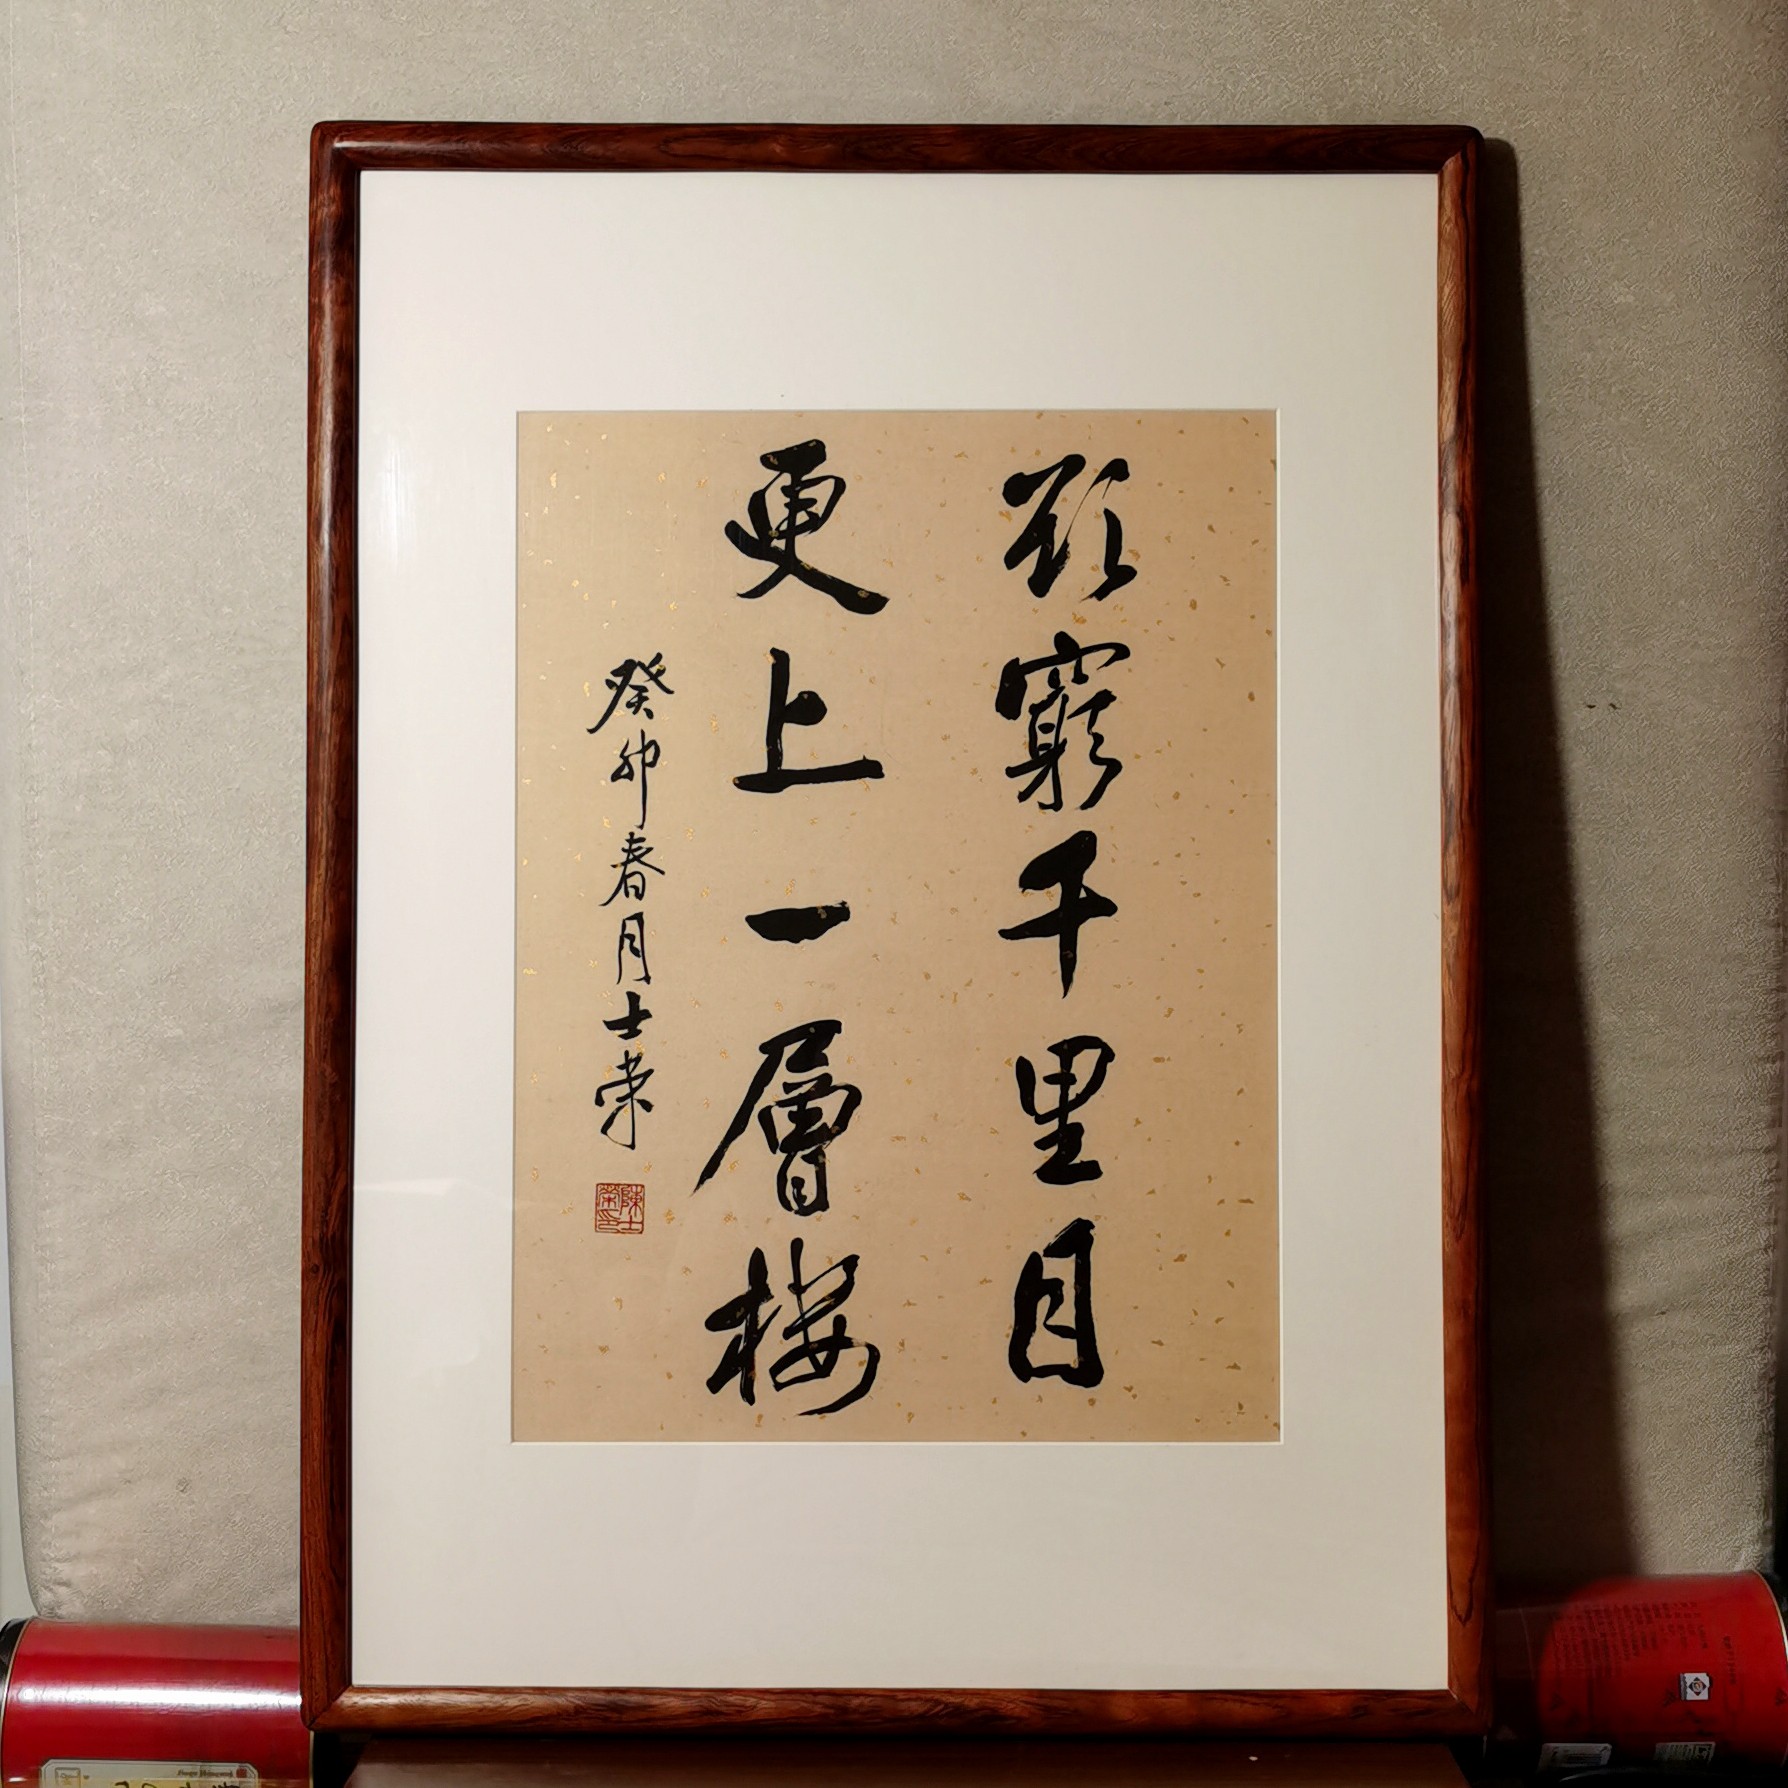 欲窮千里目
更上一層樓
癸卯春月士榮
陳士榮印